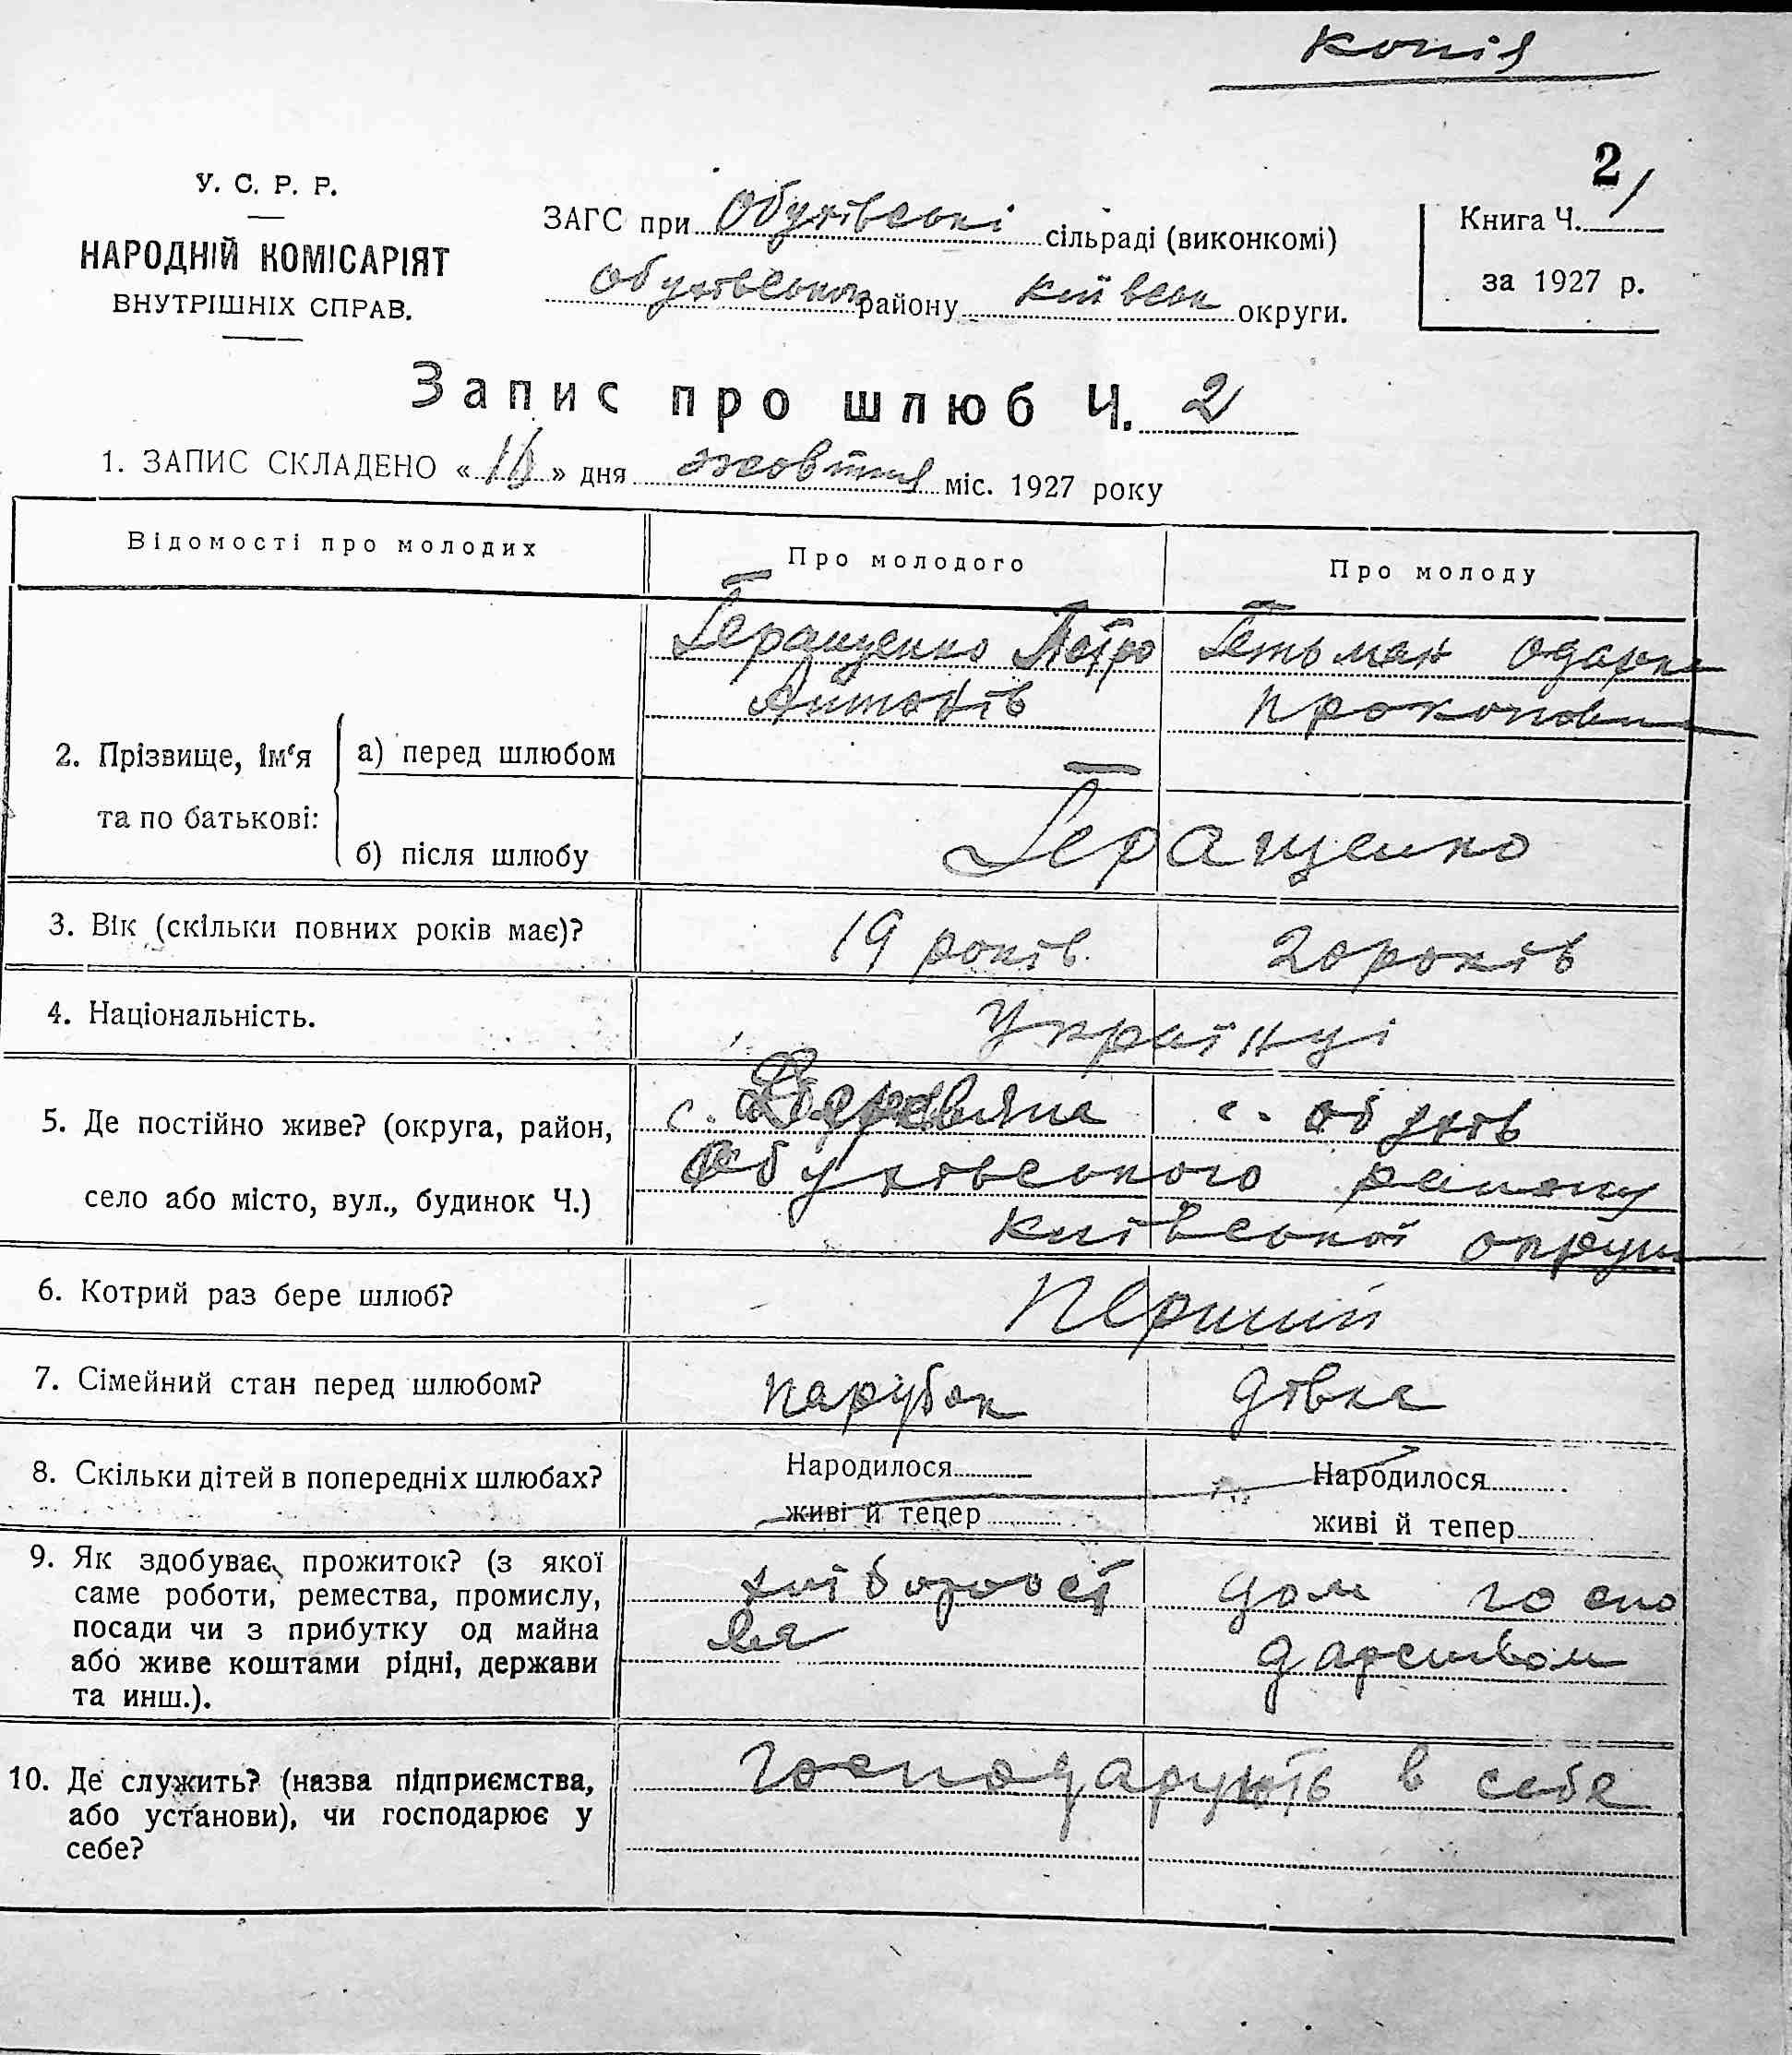 копія
2
У. С. Р. Р.
НАРОДНІЙ КОМІСАРІЯТ
ВНУТРІШНІХ СПРАВ.
ЗАГС при Обухівські сільраді (виконкомі)
Обухівського району Київськ округи.
Книга Ч. 1
за 1927 р.
Запис про шлюб Ч. 2
1. ЗАПИС СКЛАДЕНО « » дня жовтня міс. 1927 року
Відомості про молодих
Про молодого
Про молоду
2. Прізвище, ім‘я та по батькові:
а) перед шлюбом
Геращенко Петро
Антонів
Гетьман Одарка
Прокоповна
б) після шлюбу
Геращенко
3. Вік (скільки повних років має)?
19 років
20 років
4. Національність.
Українці
5. Де постійно живе? (округа, район,
село або місто, вул., будинок Ч.)
с. Деревяна
с. Обухів
Обухівського району
Київської округи
6. Котрий раз бере шлюб?
Перший
7. Сімейний стан перед шлюбом?
парубок
дівка
8. Скільки дітей в попередніх шлюбах?
Народилося
живі й тепер
Народилося
живі й тепер
9. Як здобуває прожиток? (з якої
саме роботи, ремества, промислу,
посади чи з прибутку од майна
або живе коштами рідні, держави
та инш.).
дом госпо
дарством
10. Де служить? (назва підприємства,
або установи), чи господарює у
себе?
Господарують в себе